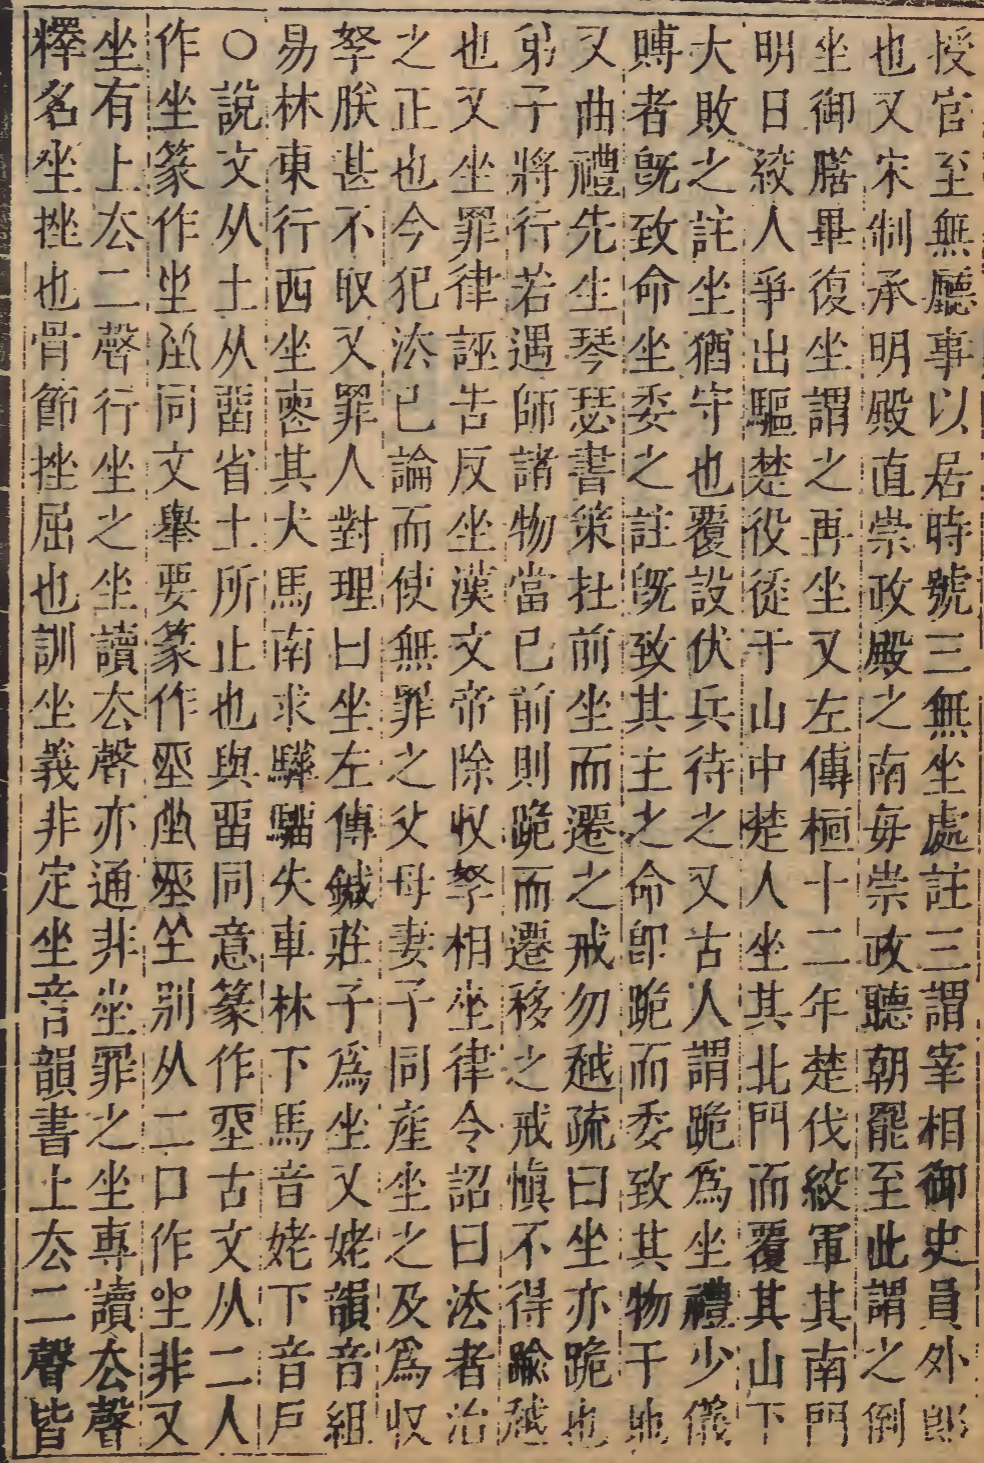 授官至無廳事以居時號三無坐處註三謂宰相御史員外郎
也又宋制承明殿直崇政殿之南毎崇政聽朝罷至此謂之倒
坐御膳畢復坐謂之再坐又左傳桓十二年楚伐絞軍其南門
明日絞人爭出驅楚役徒于山中楚人坐其北門而覆其山下
大敗之註坐猶守也覆設伏兵待之又古人謂跪爲坐禮少儀
賻者旣致命坐委之註旣致其主之命卽跪而委致其物于地
又曲禮先生琴瑟書策在前坐而遷之戒勿越疏曰坐亦跪也
弟子將行若遇師諸物當已前則跪而遷移之戒愼不得踰越
也又坐罪律誣告反坐漢文帝除收孥相坐律令詔曰法者治
之正也今犯法已論而使無罪之父母妻子同產坐之及爲收
孥朕甚不取又罪人對理曰坐左傳鍼莊子爲坐又姥韻音組
易林東行西坐喪其犬馬南求驊騮失車林下馬音姥下音戶
○說文从土从畱省土所止也與畱同意篆作坙古文从二人
作坐篆作坐同文舉要篆作坐別从二口作㘸非又
坐有上去二聲行坐之坐讀去聲亦通非坐罪之坐專讀去聲
釋名坐挫也骨節挫屈也訓坐義非定坐音韻書上去二聲皆